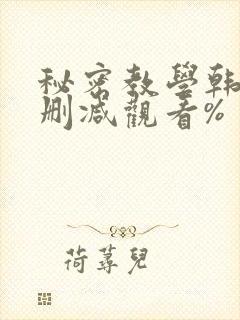 秘密教學韩
删减觀看%
荷蕁兒